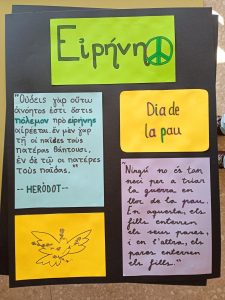 Εἰρήνη
"Οὐδεὶς γὰρ οὕτω
ἀνόητος ἐστὶ ὅστις
πόλεμον πρὸ εἰρήνης
αἱρέεται· ἐν μὲν γὰρ
τῇ οἱ παῖδες τοὺς
πατέρας θάπτουσι,
ἐν δὲ τῷ οἱ πατέρες
τοὺς παῖδας."
--HERÒDOT--
Dia de
la pau
"Ningú no és tan
neci per a triar
la guerra en
lloc de la pau.
En aquesta, els
fills enterren
els seus pares,
i en l'altra, els
pares enterren
els fills."